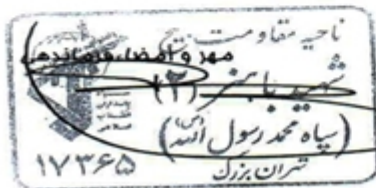 ناحیه مقاومت بسیج
مهر و امضاء فرماندهی
شهید باهنر (۳)
(سپاه محمد رسول الله (ص))
تهران بزرگ
۱۷۳۶۵